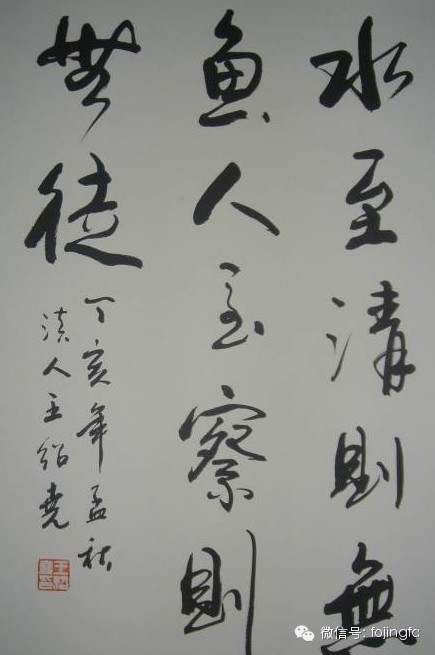 水至清则無
魚人至察则
無徒
丁亥年孟秋
滇人王绍尧
微信号: fojingfc